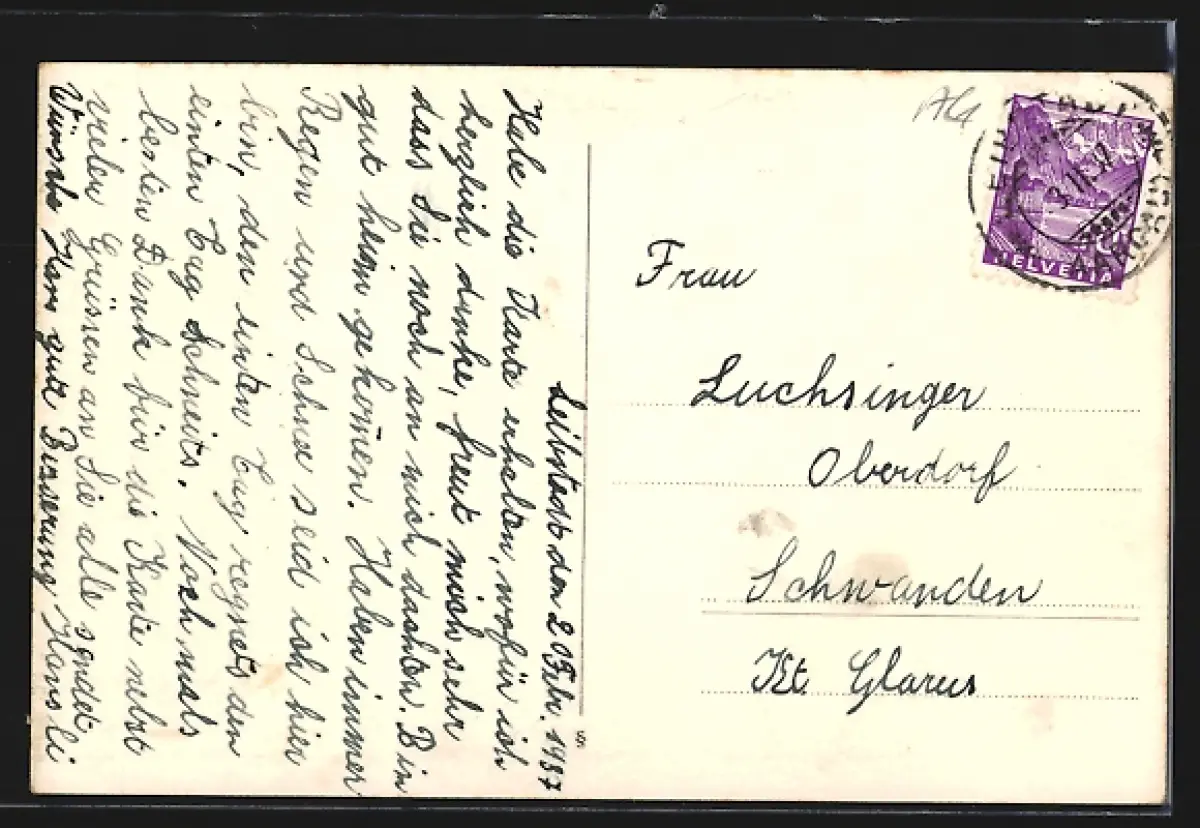 Leibstadt den 20 Febr. 1937
Habe die Karte erhalten, wofür ich
herzlich danke, freut mich sehr
dass Sie noch an mich dachten. Bin
gut heim gekom̄en. Haben immer
Regen und Schnee seid ich hier
bin, den einten Tag regnets den
einten Tag schneits. Nochmals
besten Dank für die Karte nebst
vielen Grüssen an Sie alle sendet
Wünsche Herr gute Besserung Hansli
Frau
Luchsinger
Oberdorf
Schwanden
Kt. Glarus
HELVETIA
AARGAU